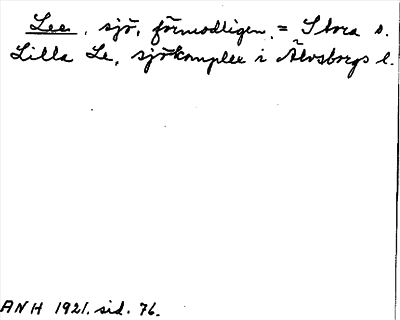 Lee, sjö, förmodligen = Stora o.
Lilla Le, sjökomplex i Älvsborgs l.
ANH 1921. sid. 76.